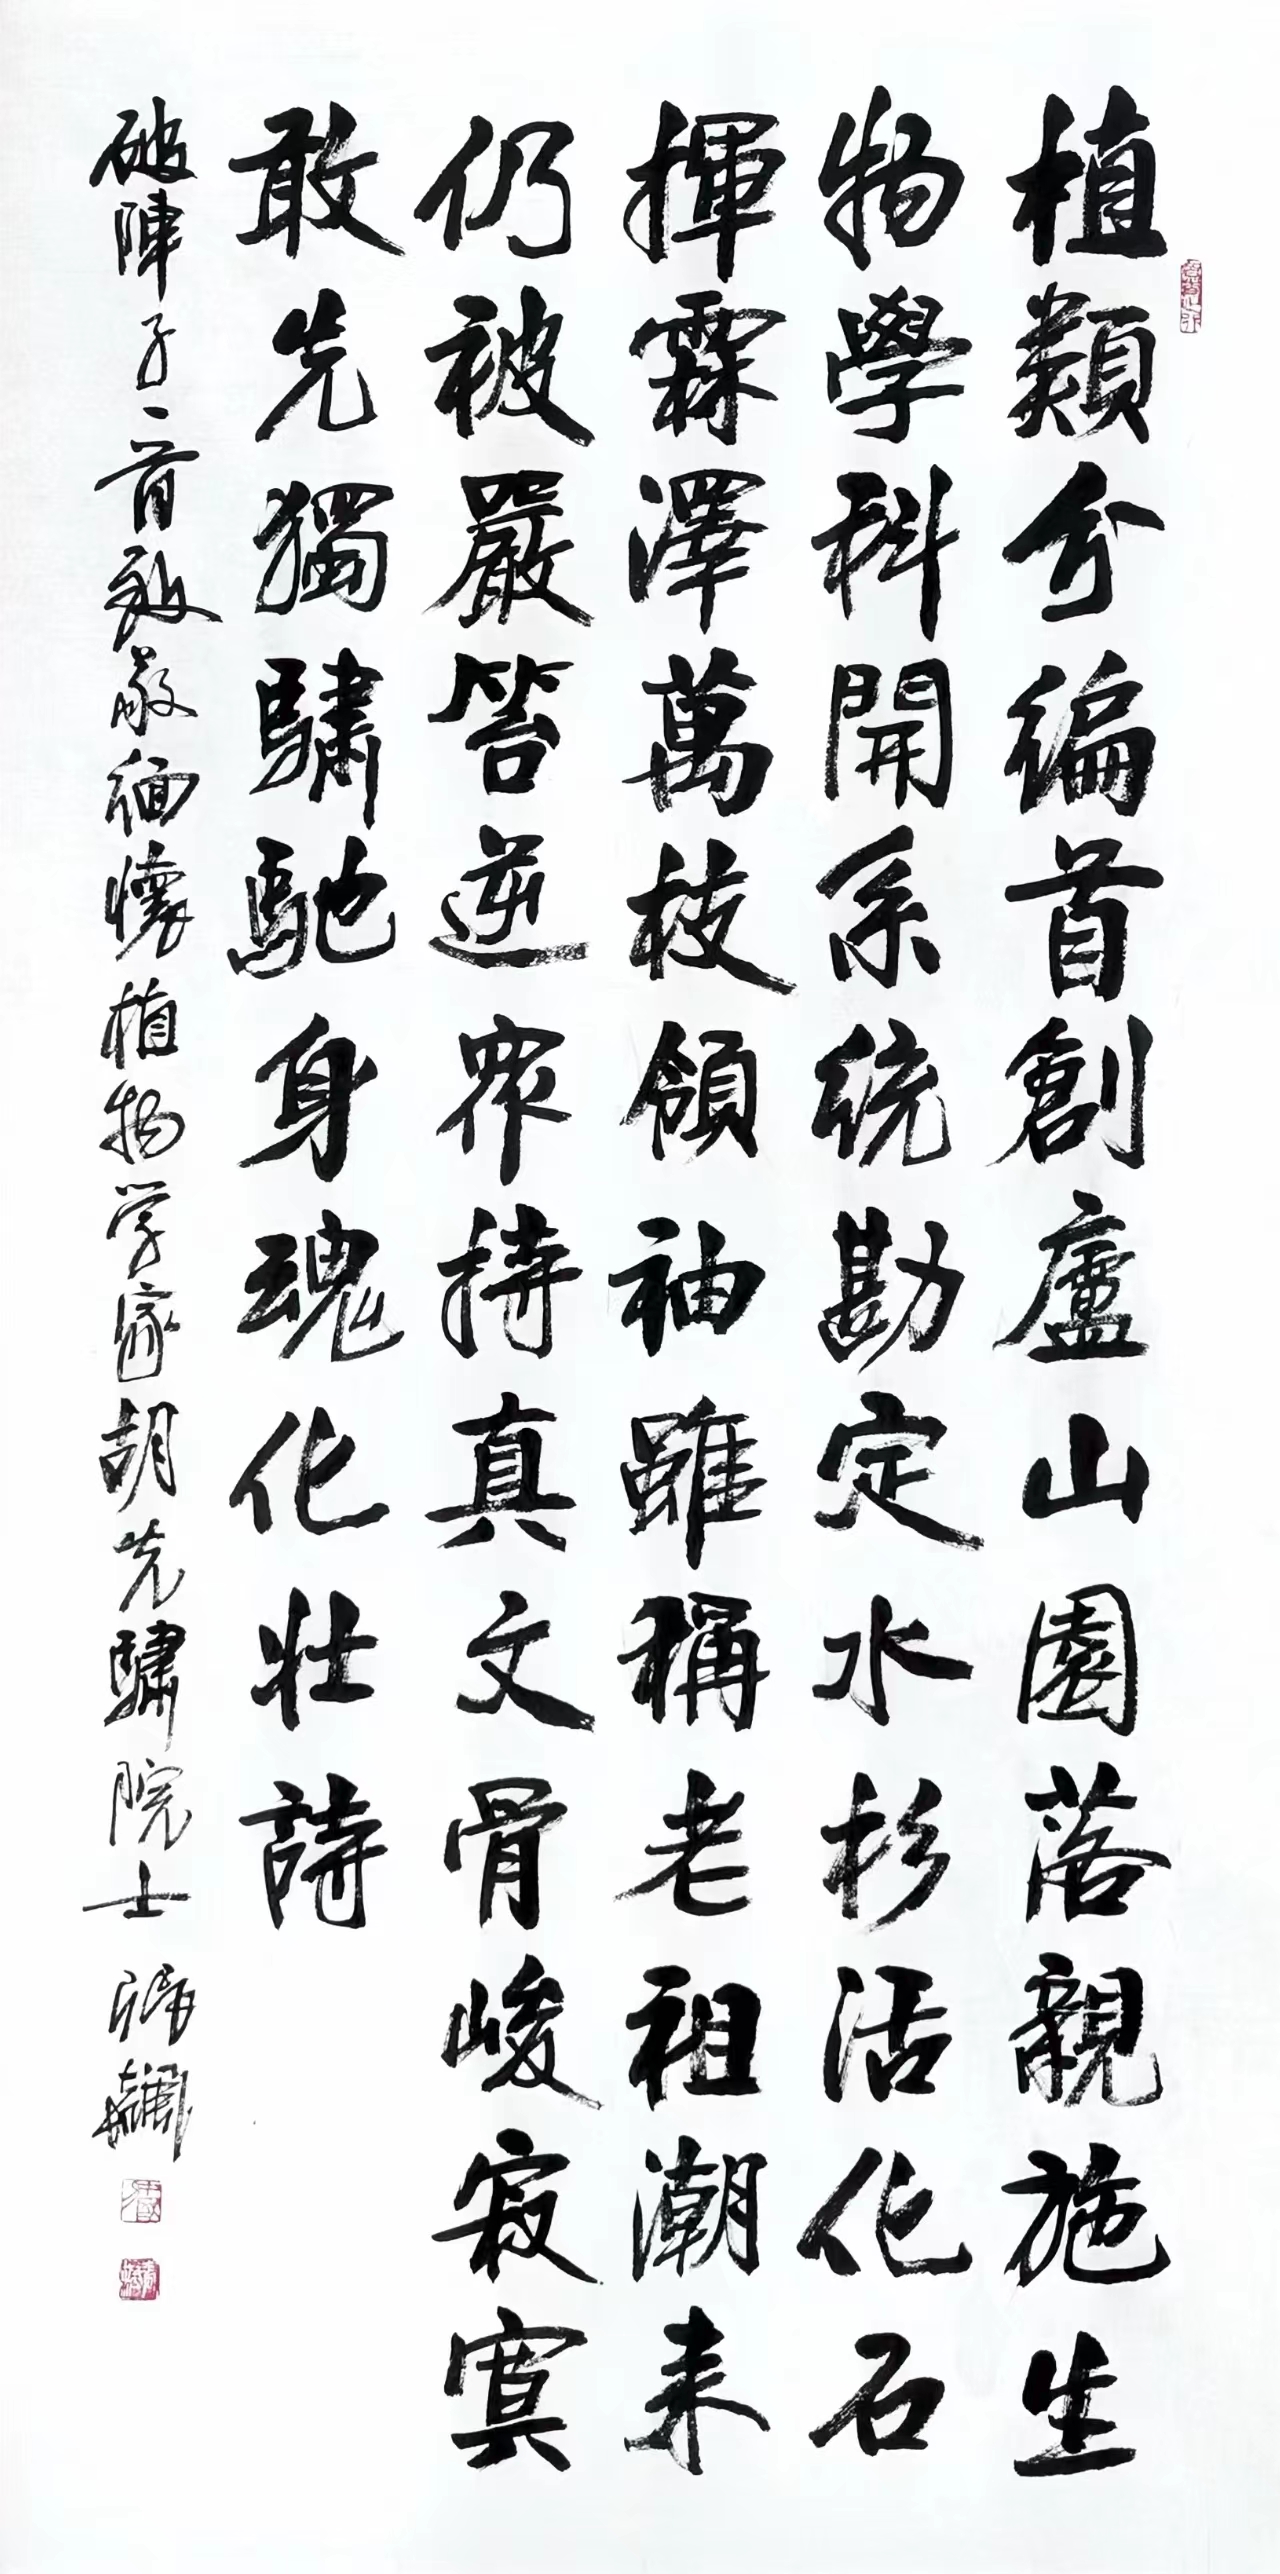 植類分編首創廬山園落親施生
物學科開系統勘定水杉活化石
揮霖澤萬枝領袖雖稱老祖潮来
仍被嚴笞逆眾持真文骨峻寂寞
敢先獨驌馳身魂化壯詩
破陣子一首敬緬懷植物学家胡先驌院士